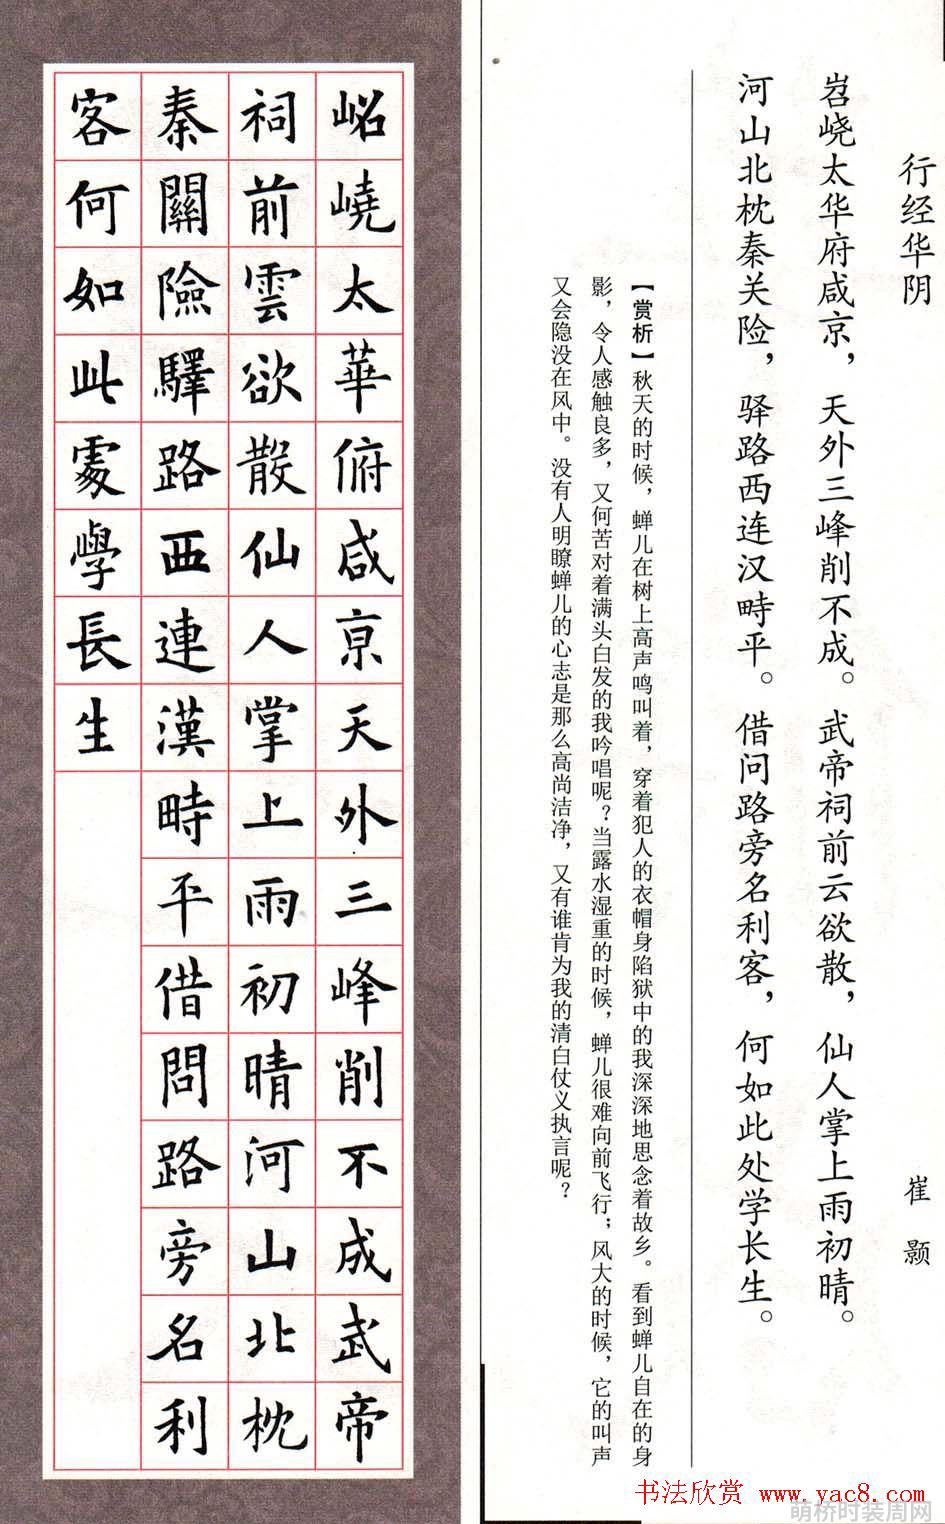 行经华阴 崔颢
岧峣太华府咸京，天外三峰削不成。武帝祠前云欲散，仙人掌上雨初晴。
河山北枕秦关险，驿路西连汉畤平。借问路旁名利客，何如此处学长生。
【赏析】秋天的时候，蝉儿在树上高声鸣叫着，穿着犯人的衣帽身陷狱中的我深深地思念着故乡。看到蝉儿自在的身
影，令人感触良多，又何苦对着满头白发的我吟唱呢？当露水湿重的时候，蝉儿很难向前飞行；风大的时候，它的叫声
又会隐没在风中。没有人明瞭蝉儿的心志是那么高尚洁净，又有谁肯为我的清白仗义执言呢？
岹嶢太華俯咸亰天外三峰削不成武帝
祠前雲欲散仙人掌上雨初晴河山北枕
秦關險驛路西連漢畤平借問路旁名利
客何如此處學長生
书法欣赏 www.yac8.com
萌桥时装周网